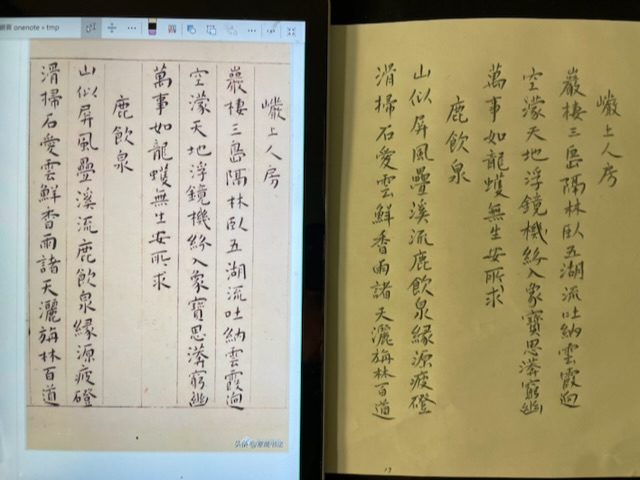 onenote » tmp
巘上人房
巖棲三島隔林臥五湖流吐納雲霞迥
空濛天地浮鏡機終入象寶思漭窮幽
萬事如龍蠖無生安所求
鹿飲泉
山似屏風疊溪流鹿飲泉緣源疲磴
滑掃石愛雲鮮香雨諸天灑旃林百道
巘上人房
巖棲三島隔林臥五湖派吐納雲霞迥
空濛天地浮鏡機終入象寶思漭窮幽
萬事如龍蠖無生安所求
鹿飲泉
山似屏風疊溪流鹿飲泉緣源疲磴
滑掃石愛雲鮮香雨諸天灑旃林百道